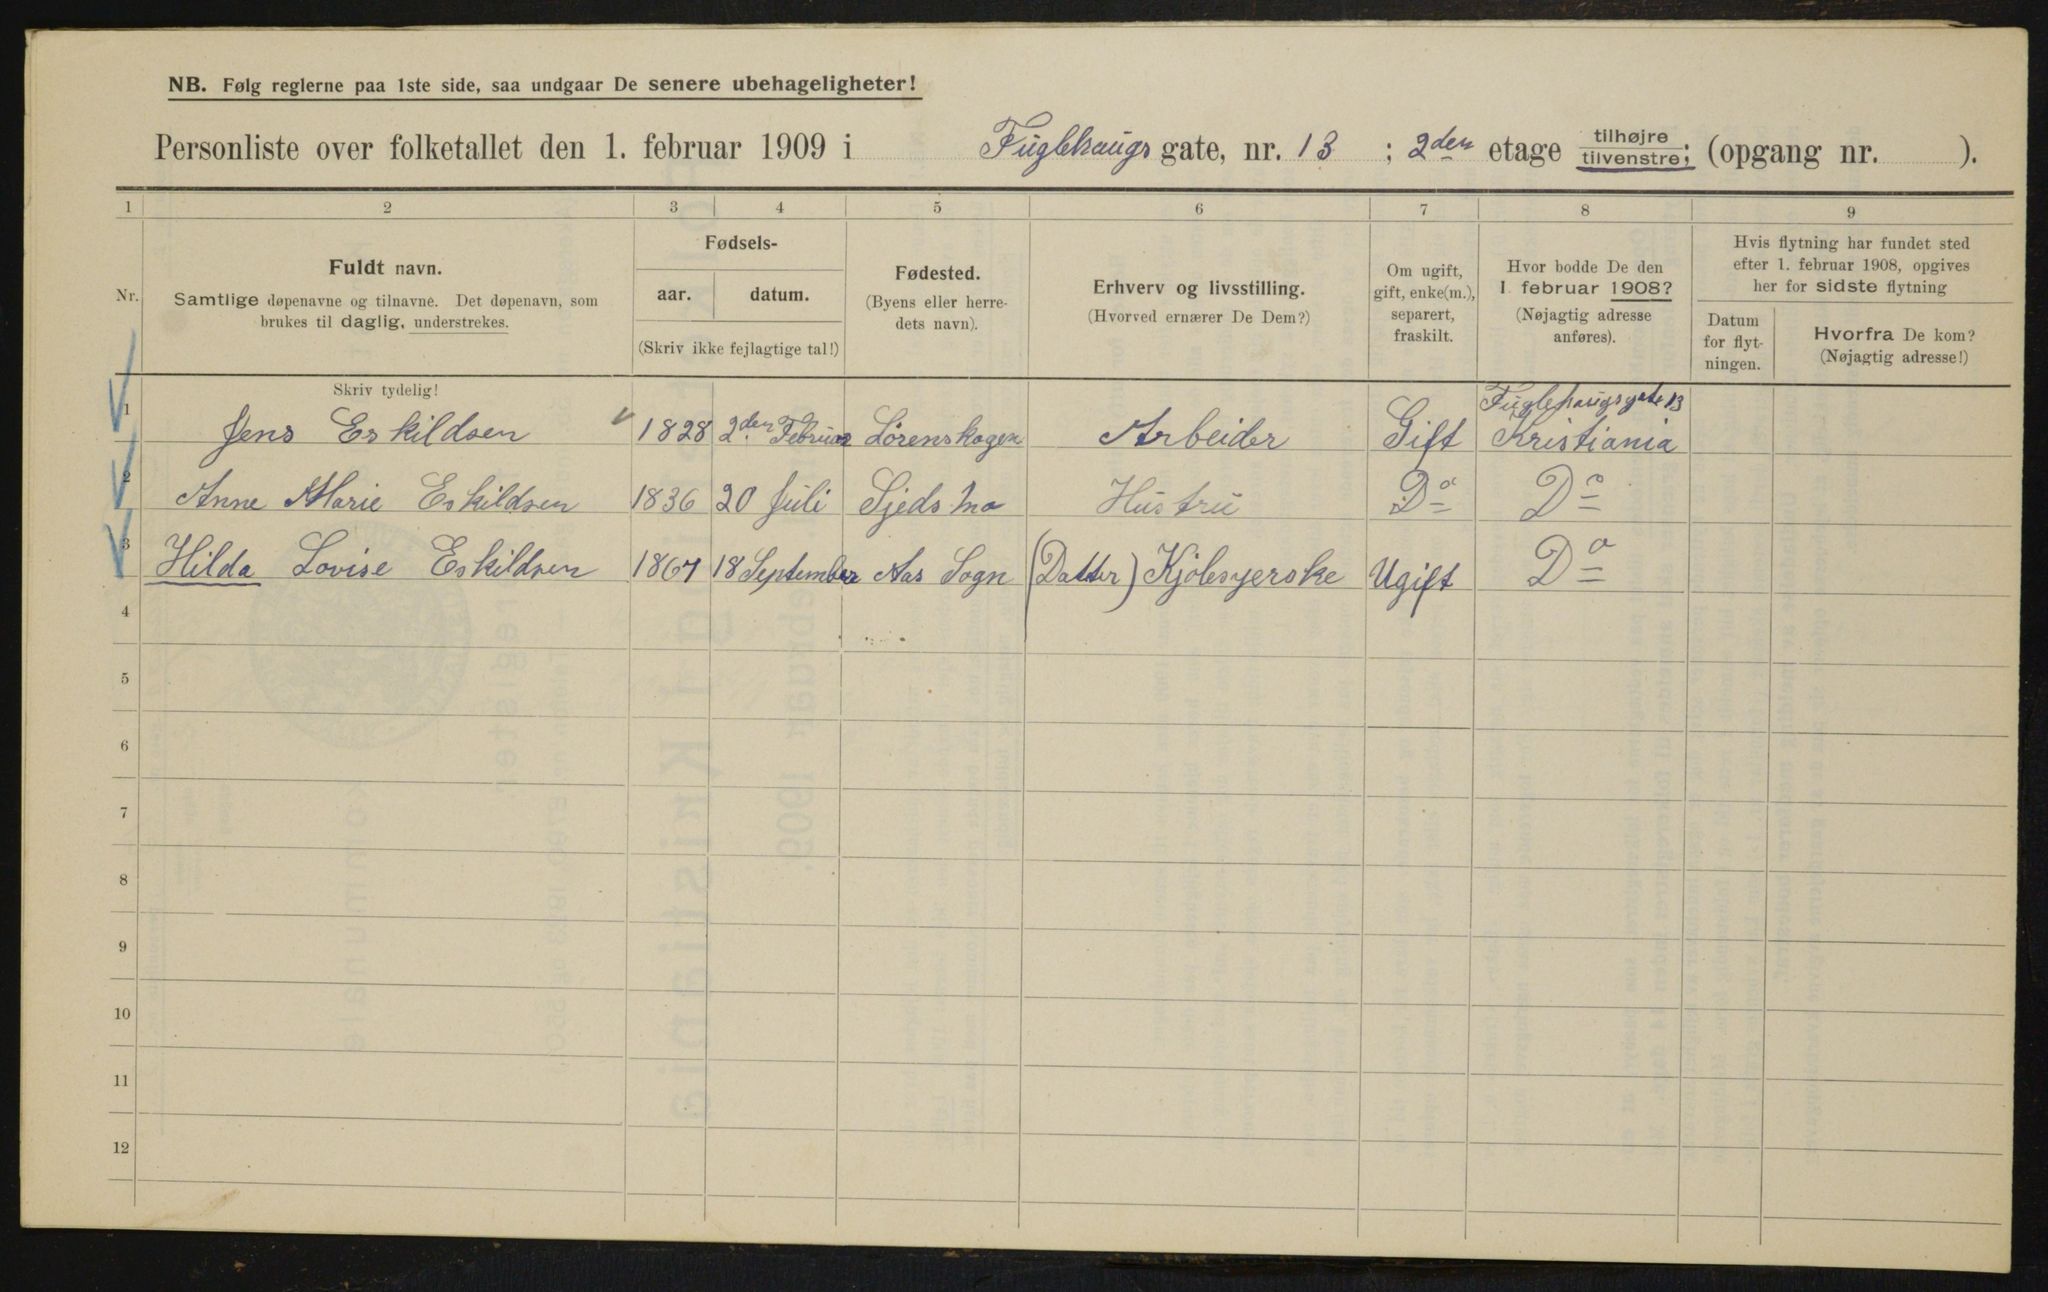 NB. Følg reglerne paa 1ste side, saa undgaar De senere ubehageligheter!
Personliste over folketallet den 1. februar 1909 i Fuglehaugs gate, nr. 13 ; 2den etage tilhøjre tilvenstre; (opgang nr. ).
1 2 3 4 5 6 7 8 9
Nr.
Fuldt navn.
Samtlige døpenavne og tilnavne. Det døpenavn, som
brukes til daglig, understrekes.
Fødsels-
aar. datum.
(Skriv ikke fejlagtige tal!)
Fødested.
(Byens eller herre-
dets navn).
Erhverv og livsstilling.
(Hvorved ernærer De Dem?)
Om ugift,
gift, enke(m.),
separert,
fraskilt.
Hvor bodde De den
1. februar 1908?
(Nøjagtig adresse
anføres).
Hvis flytning har fundet sted
efter 1. februar 1908, opgives
her for sidste flytning
Datum
for flyt-
ningen.
Hvorfra De kom?
(Nøjagtig adresse!)
Skriv tydelig!
Fuglehaugsgate 13
1 Jens Eskildsen 1828 2den Februar Lörenskogen Arbeider Gift Kristiania
2 Anne Marie Eskildsen 1836 20 Juli Sjedsmo Hustru Do Do
3 Hilda Lovise Eskildsen 1867 18 September Aas Sogn (Datter) Kjolesyerske Ugift Do
4
5
6
7
8
9
10
11
12